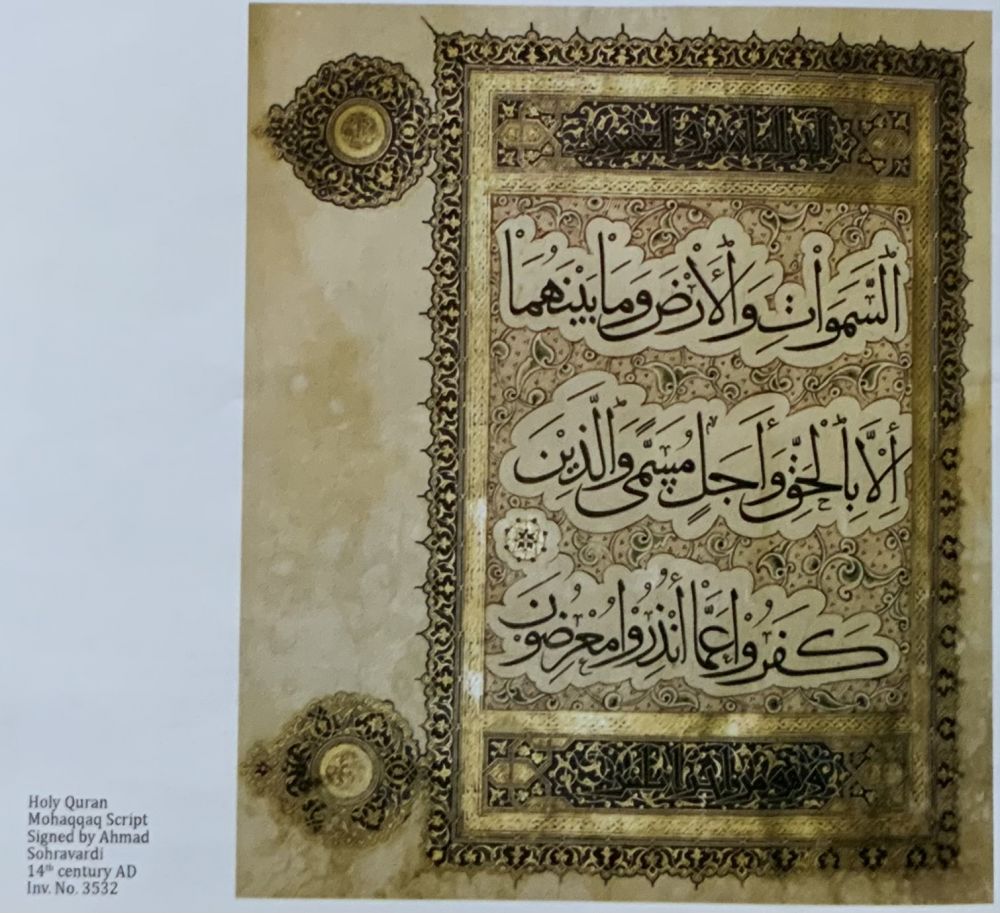 السَّمَوَاتِ وَالْأَرْضَ وَمَا بَيْنَهُمَا
إِلَّا بِالْحَقِّ وَأَجَلٍ مُسَمًّى وَالَّذِينَ
كَفَرُوا عَمَّا أُنْذِرُوا مُعْرِضُونَ
Holy Quran
Mohaqqaq Script
Signed by Ahmad
Sohravardi
14th century AD
Inv. No. 3532